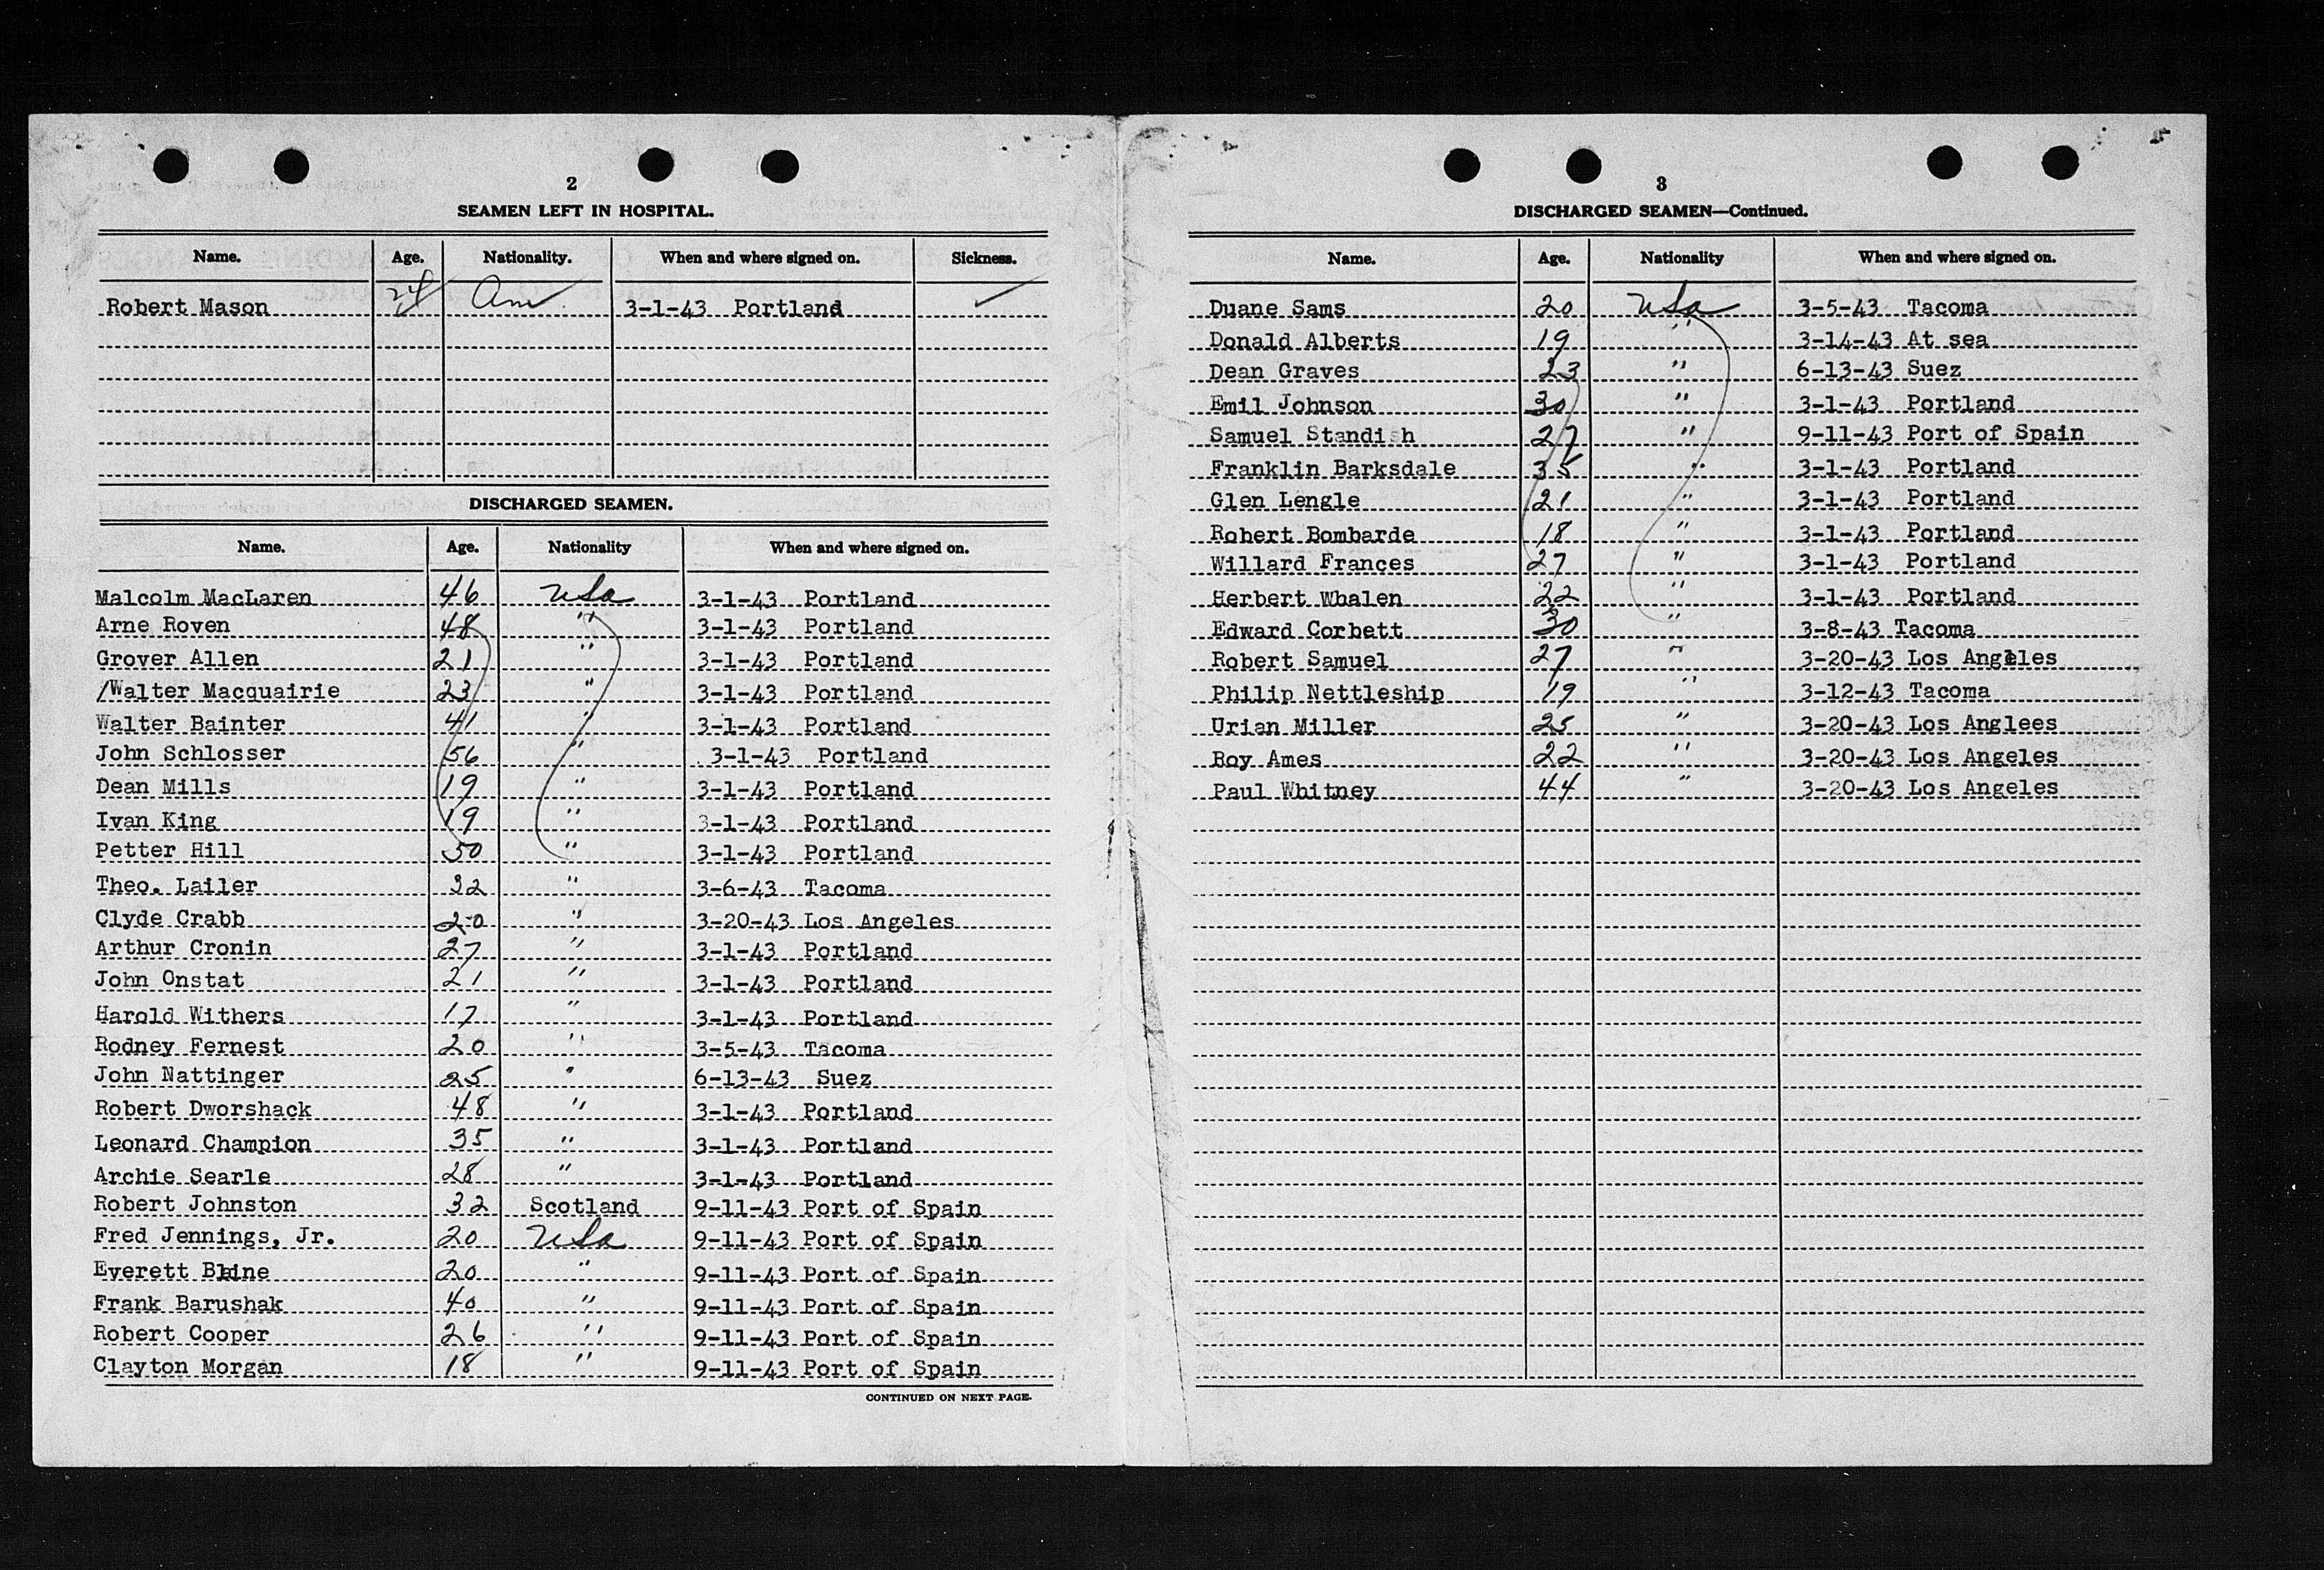 2
SEAMEN LEFT IN HOSPITAL.
Name. Age. Nationality. When and where signed on. Sickness.
Robert Mason 24 Am 3-1-43 Portland ✓
DISCHARGED SEAMEN.
Name. Age. Nationality When and where signed on.
Malcolm MacLaren 46 USA 3-1-43 Portland
Arne Roven 48 " 3-1-43 Portland
Grover Allen 21 " 3-1-43 Portland
/Walter Macquairie 23 " 3-1-43 Portland
Walter Bainter 41 " 3-1-43 Portland
John Schlosser 56 " 3-1-43 Portland
Dean Mills 19 " 3-1-43 Portland
Ivan King 19 " 3-1-43 Portland
Petter Hill 50 " 3-1-43 Portland
Theo. Lailer 32 " 3-6-43 Tacoma
Clyde Crabb 20 " 3-20-43 Los Angeles
Arthur Cronin 27 " 3-1-43 Portland
John Onstat 21 " 3-1-43 Portland
Harold Withers 17 " 3-1-43 Portland
Rodney Fernest 20 " 3-5-43 Tacoma
John Nattinger 25 " 6-13-43 Suez
Robert Dworshack 48 " 3-1-43 Portland
Leonard Champion 35 " 3-1-43 Portland
Archie Searle 28 " 3-1-43 Portland
Robert Johnston 32 Scotland 9-11-43 Port of Spain
Fred Jennings, Jr. 20 USA 9-11-43 Port of Spain
Everett 20 " 9-11-43 Port of Spain
Frank Barushak 40 " 9-11-43 Port of Spain
Robert Cooper 26 " 9-11-43 Port of Spain
Clayton Morgan 18 " 9-11-43 Port of Spain
CONTINUED ON NEXT PAGE.
3
DISCHARGED SEAMEN—Continued.
Name. Age. Nationality When and where signed on.
Duane Sams 20 USA 3-5-43 Tacoma
Donald Alberts 19 " 3-14-43 At sea
Dean Graves 23 " 6-13-43 Suez
Emil Johnson 30 " 3-1-43 Portland
Samuel Standish 27 " 9-11-43 Port of Spain
Franklin Barksdale 35 " 3-1-43 Portland
Glen Lengle 21 " 3-1-43 Portland
Robert Bombarde 18 " 3-1-43 Portland
Willard Frances 27 " 3-1-43 Portland
Herbert Whalen 22 " 3-1-43 Portland
Edward Corbett 30 " 3-8-43 Tacoma
Robert Samuel 27 " 3-20-43 Los Angeles
Philip Nettleship 19 " 3-12-43 Tacoma
Urian Miller 25 " 3-20-43 Los Anglees
Roy Ames 22 " 3-20-43 Los Angeles
Paul Whitney 44 " 3-20-43 Los Angeles